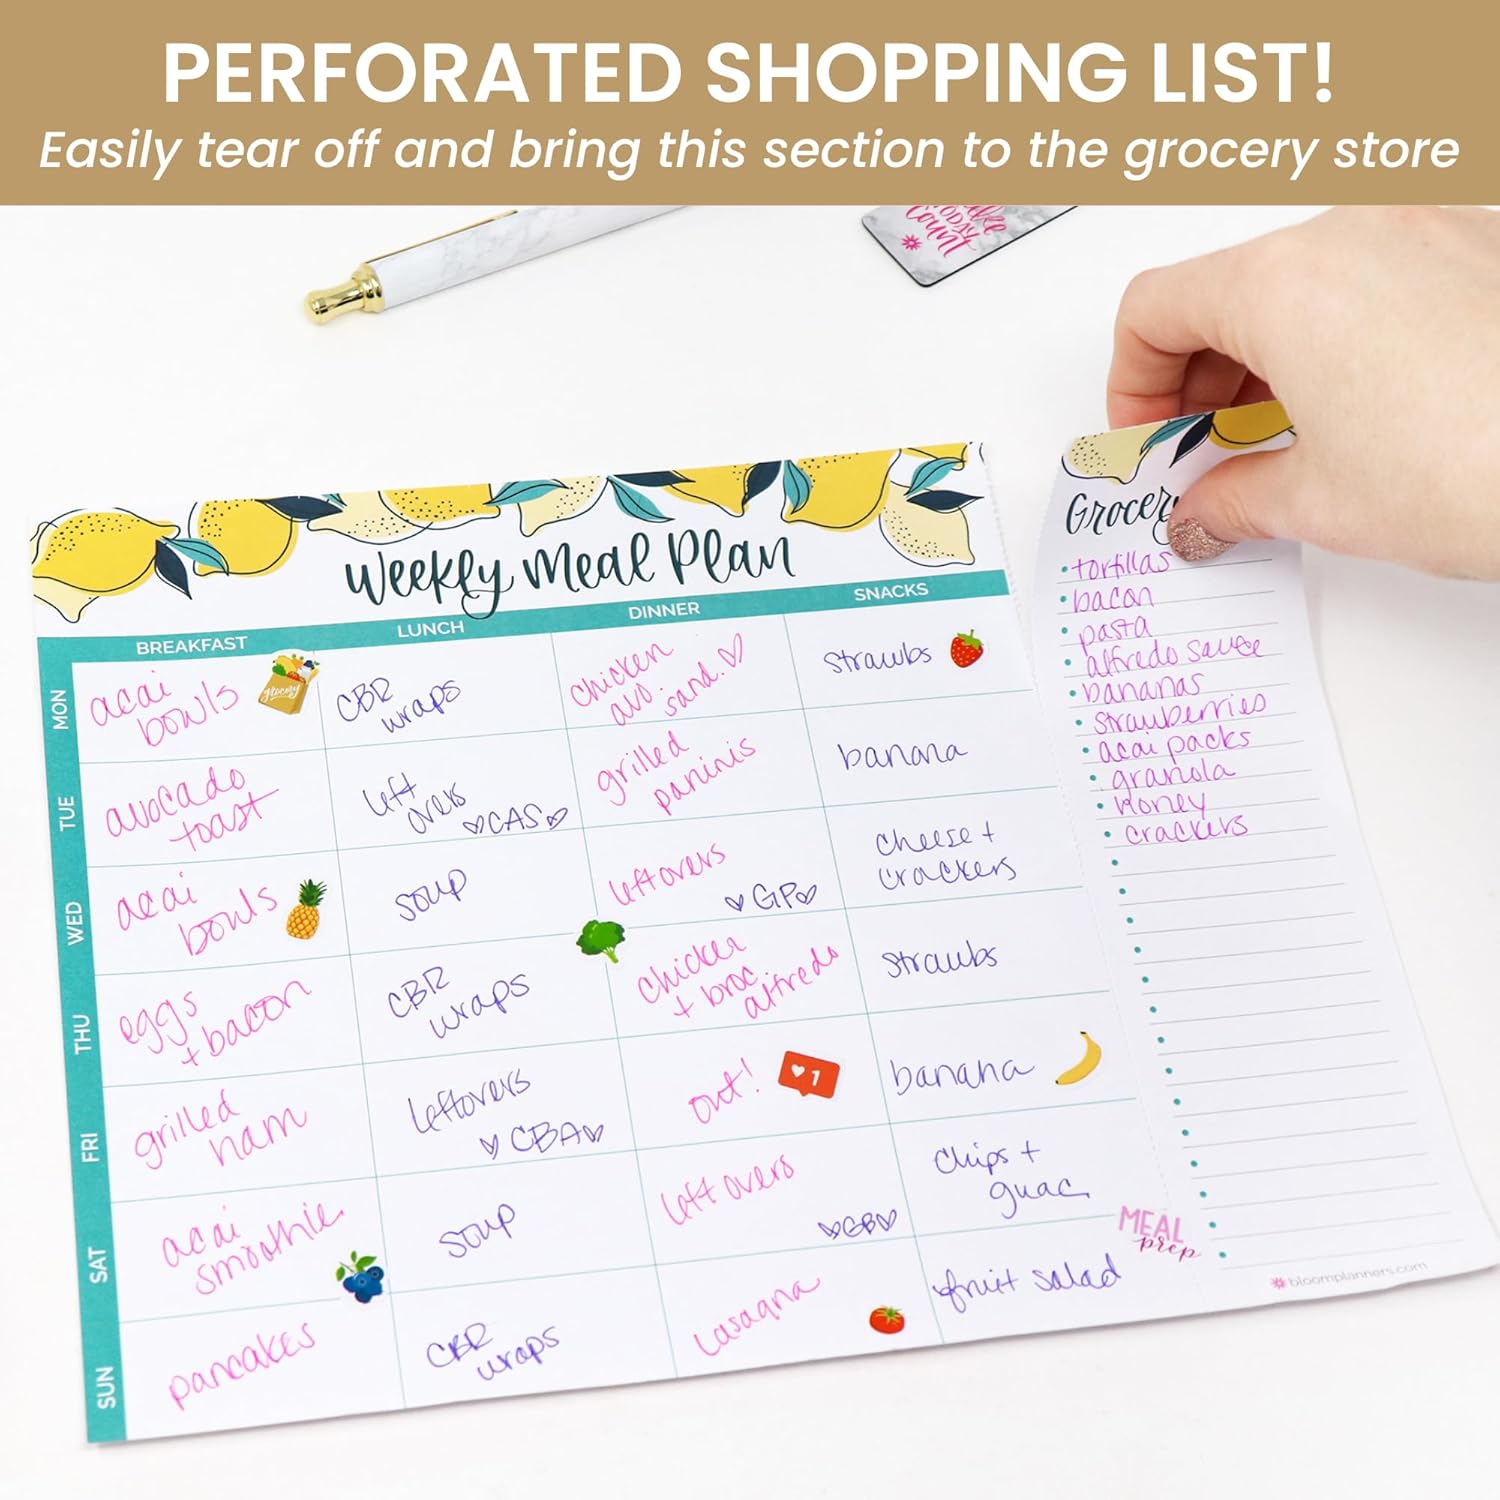 PERFORATED SHOPPING LIST!
Easily tear off and bring this section to the grocery store
TODAY
Count
Weekly Meal Plan
BREAKFAST LUNCH DINNER SNACKS
MON
acai
bowls
grocery
CBR
wraps
chicken
avo
sand.
strawbs
TUE
avocado
toast
left
overs
CAS
grilled
paninis
banana
WED
acai
bowls
soup
leftovers
GP
cheese +
crackers
THU
eggs
+ bacon
CBR
wraps
chicken
+ broc
alfredo
strawbs
FRI
grilled
ham
leftovers
CBA
out!
1
banana
SAT
acai
smoothie
soup
left overs
GB
chips +
guac
SUN
pancakes
CBR
wraps
lasagna
fruit salad
MEAL
prep
Grocery
tortillas
bacon
pasta
alfredo sauce
bananas
strawberries
acai packs
granola
honey
crackers
bloomplanners.com